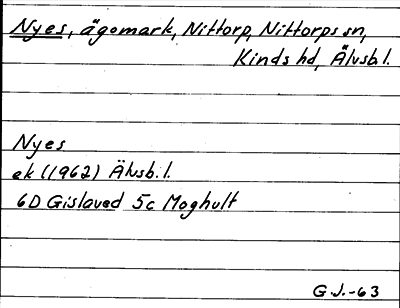 Nyes, ägomark, Nittorp, Nittorps sn,
Kinds hd, Älvsb.l.
Nyes
ek (1962) Älvsb.l.
6D Gislaved 5c Moghult
G.J.-63